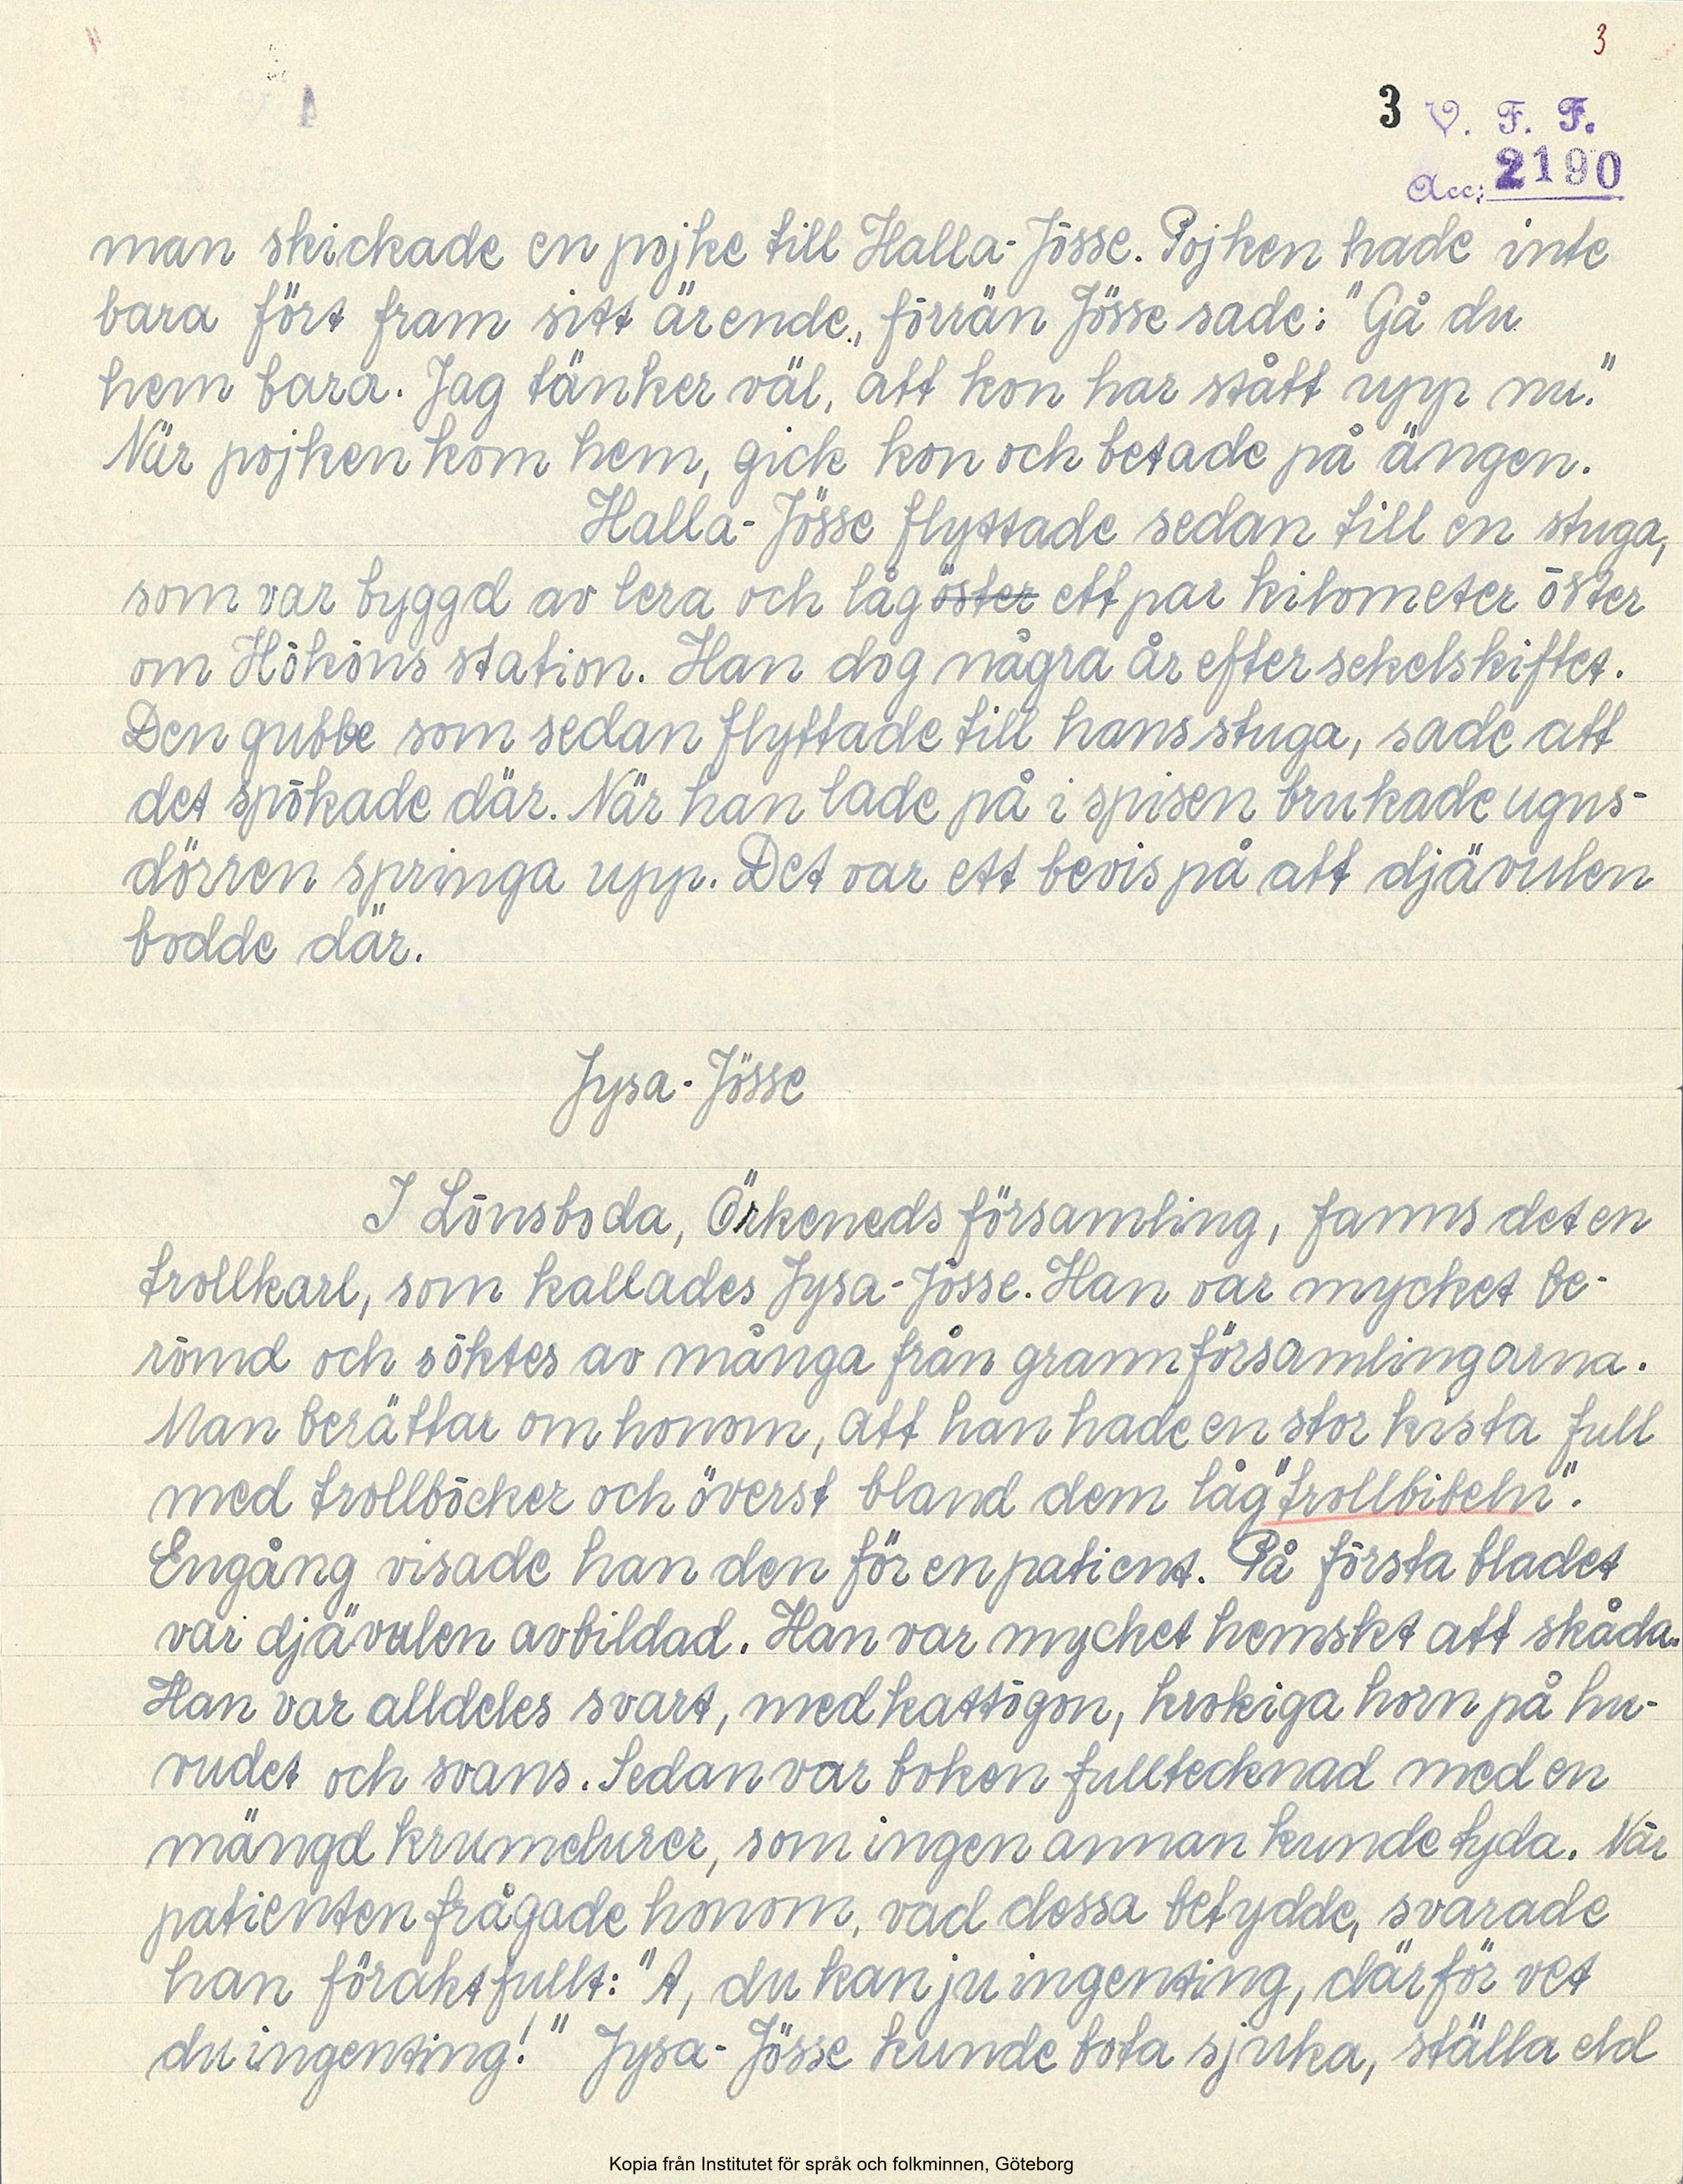 3
3 V. F. F.
Acc: 2190
man skickade en pojke till Halla-Jösse. Pojken hade inte
bara fört fram sitt ärende, förrän Jösse sade: "Gå du
hem bara. Jag tänker väl, att kon har stått upp nu."
När pojken kom hem, gick kon och betade på ängen.
Halla-Jösse flyttade sedan till en stuga,
som var byggd av lera och låg öster ett par kilometer öster
om Hököns station. Han dog några år efter sekelskiftet.
Den gubbe som sedan flyttade till hans stuga, sade att
det spökade där. När han lade på i spisen brukade ugns-
dörren springa upp. Det var ett bevis på att djävulen
bodde där.
Jysa-Jösse
I Lönsboda, Örkeneds församling, fanns det en
trollkarl, som kallades Jysa-Jösse. Han var mycket be-
römd och söktes av många från grannförsamlingarna.
Man berättar om honom, att han hade en stor kista full
med trollböcker och överst bland dem låg "trollbibeln".
Engång visade han den för en patient. På första bladet
var djävulen avbildad. Han var mycket hemskt att skåda.
Han var alldeles svart, med kattögon, krokiga horn på hu-
vudet och svans. Sedan var boken fulltecknad med en
mängd krumelurer, som ingen annan kunde tyda. När
patienten frågade honom, vad dessa betydde, svarade
han föraktfullt: "A, du kan ju ingenting, därför vet
du ingenting!" Jysa-Jösse kunde bota sjuka, ställa eld
Kopia från Institutet för språk och folkminnen, Göteborg